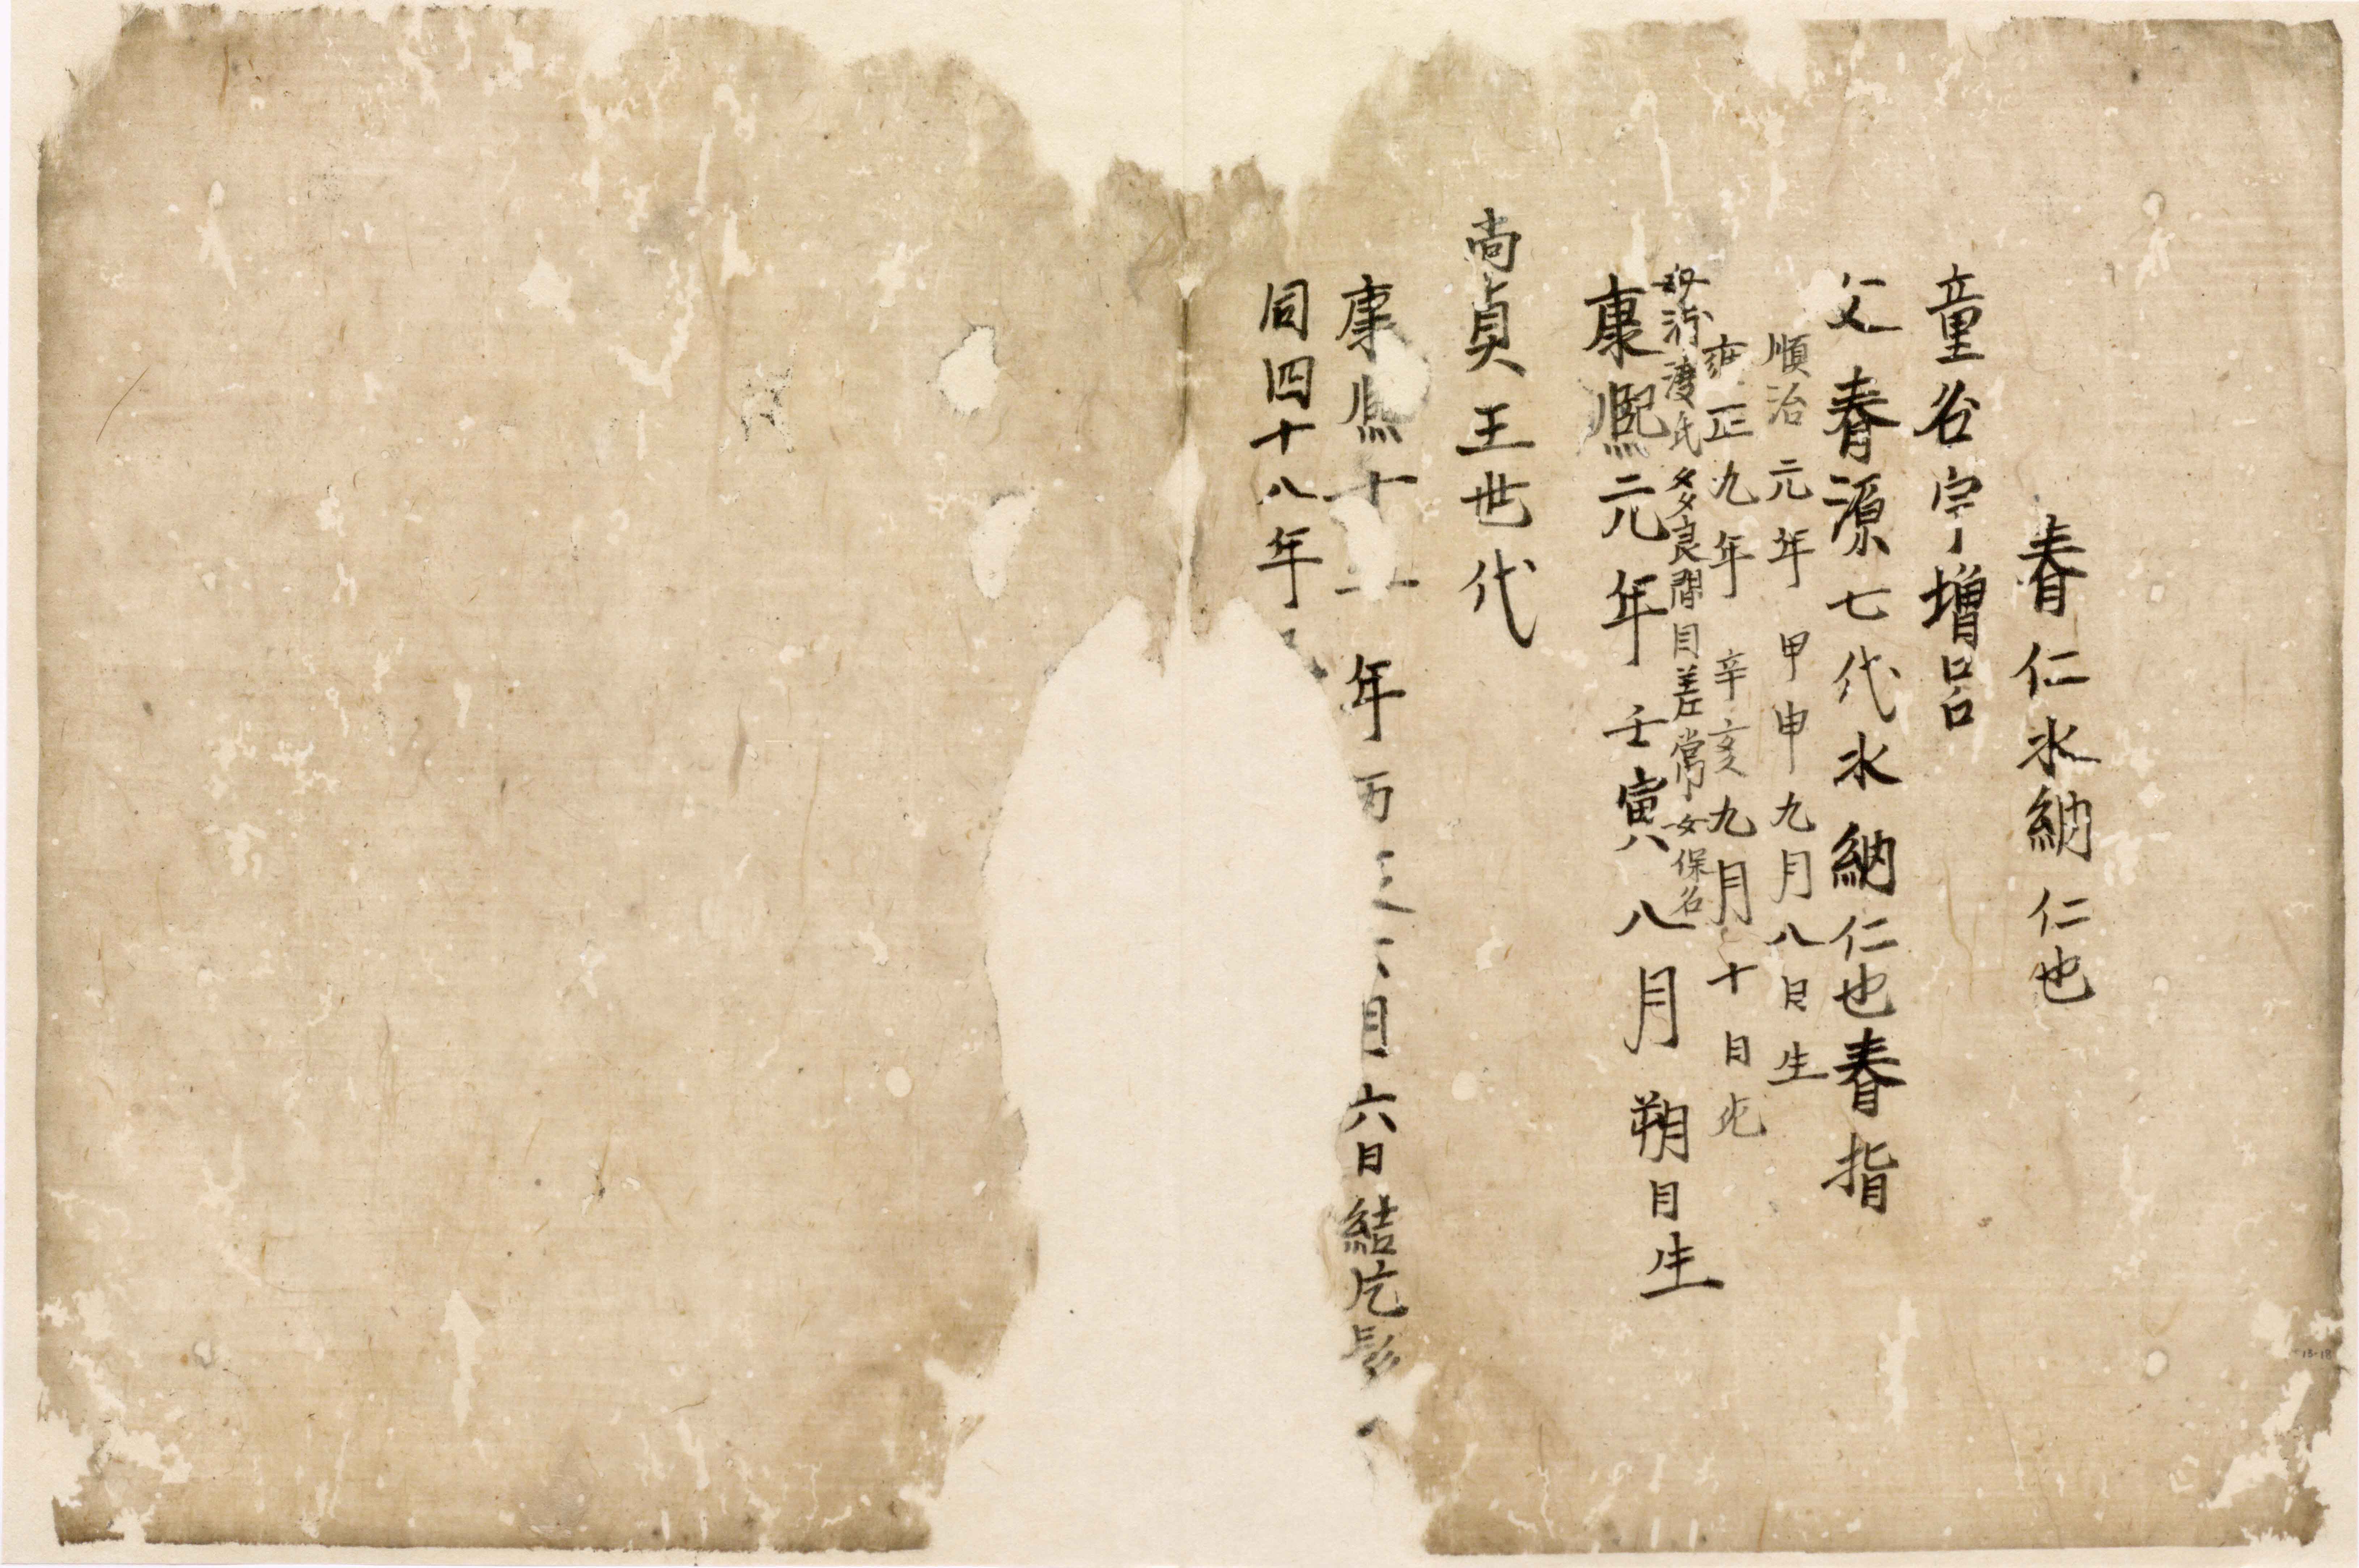 春仁氷納仁也
童名宇増呂
父春源七代氷納仁也春指
順治元年甲申九月八日生
雍正九年辛亥九月十日死
渡氏多良間目差常女保名
康熙元年壬寅八月朔日生
尚貞王世代
康熙十五年丙辰二月六日結片髪
同四十八年